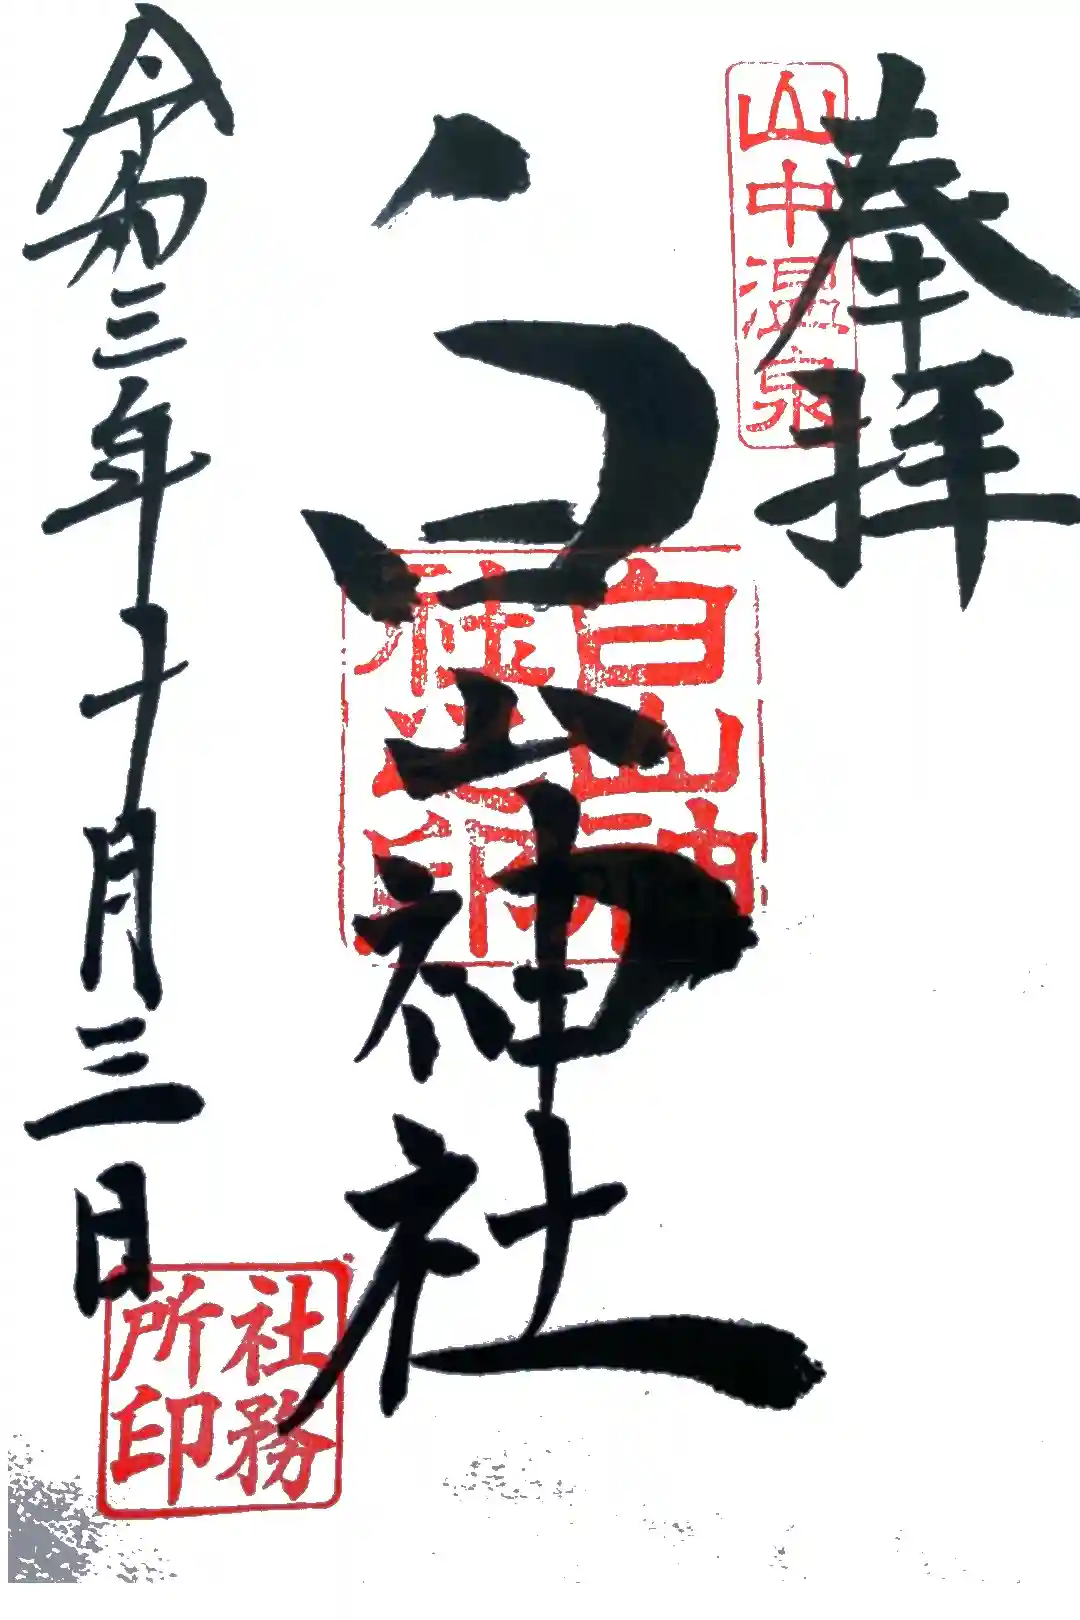 奉拝
山中温泉
白山神社
白山神社之印
令和三年十月三日
社務所印